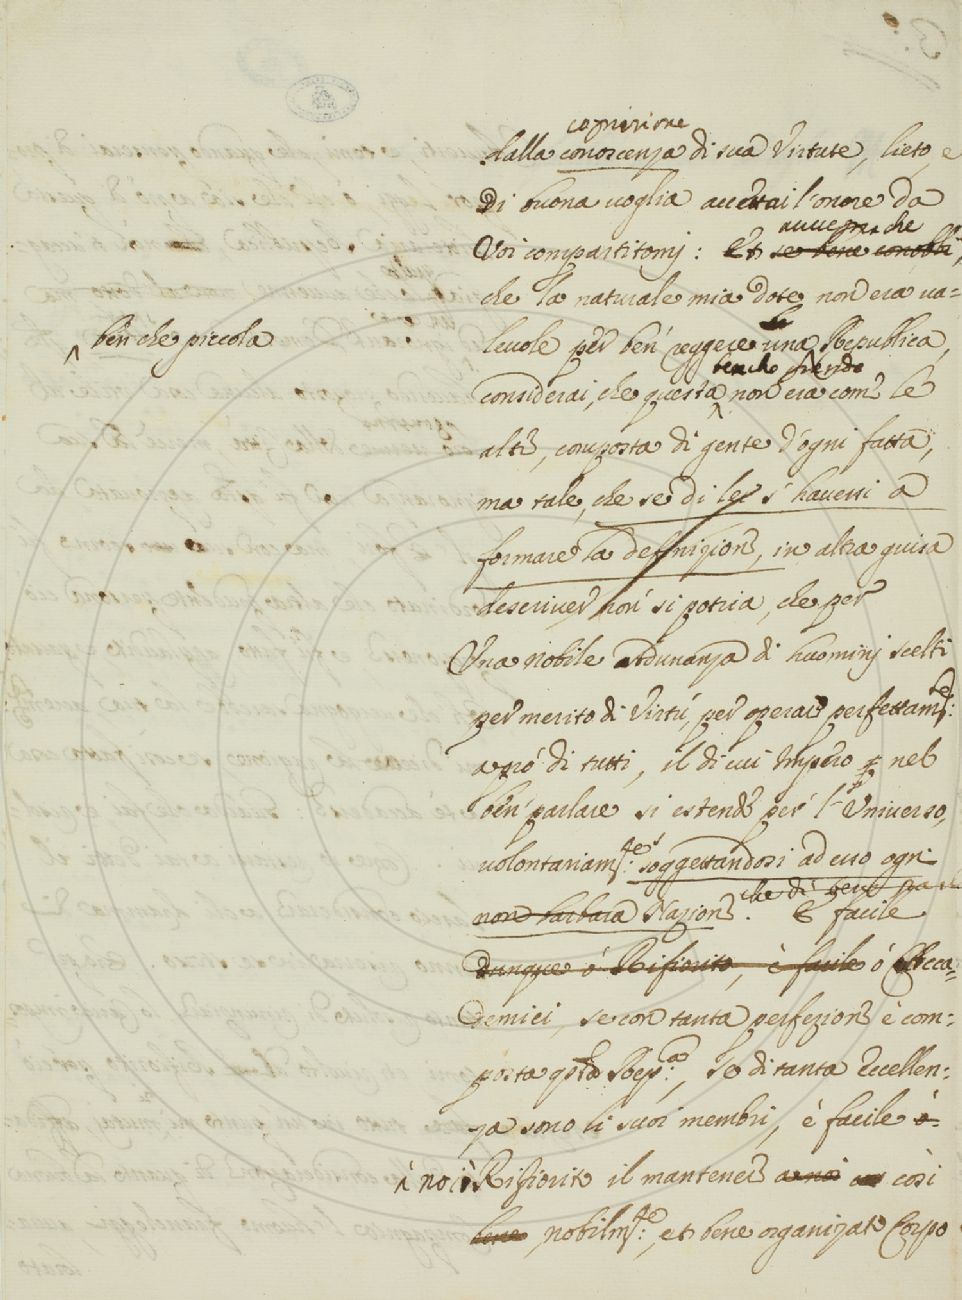 cognizione
dalla conoscenza di sua Virtute, lieto, e
Di buona voglia accettai l'onore da
avvegnache
Voi compartitomi: Et se bene conobbi,
che la naturale mia dote non era va=
benche piccola
levole per ben reggere una Republica,
benche
considerai, che questa non era come le
altre, composta di gente d'ogni fatta,
ma tale, che se di lei s'havessi a
formare la definizione, in altra guisa
descriver non si potria, che per
Una nobile adunanza di huomini scelti
per merito di Virtú, per operare perfettamte:
a pró di tutti, il di cui Impero nel
ben parlare si estende per l'Universo,
volontariamte: soggettandosi ad esso ogni
che di
non barbara Nazione. E facile
Dunque ó Rifiorito, è facile ó Acca=
demici, se con tanta perfezione è com=
posta qsta Repca:, se di tanta Eccellen=
za sono li suoi membri, è facile ó
à noi Rifiorito il mantenere a noi un cosi
bene nobilmte:, et bene organizato Corpo